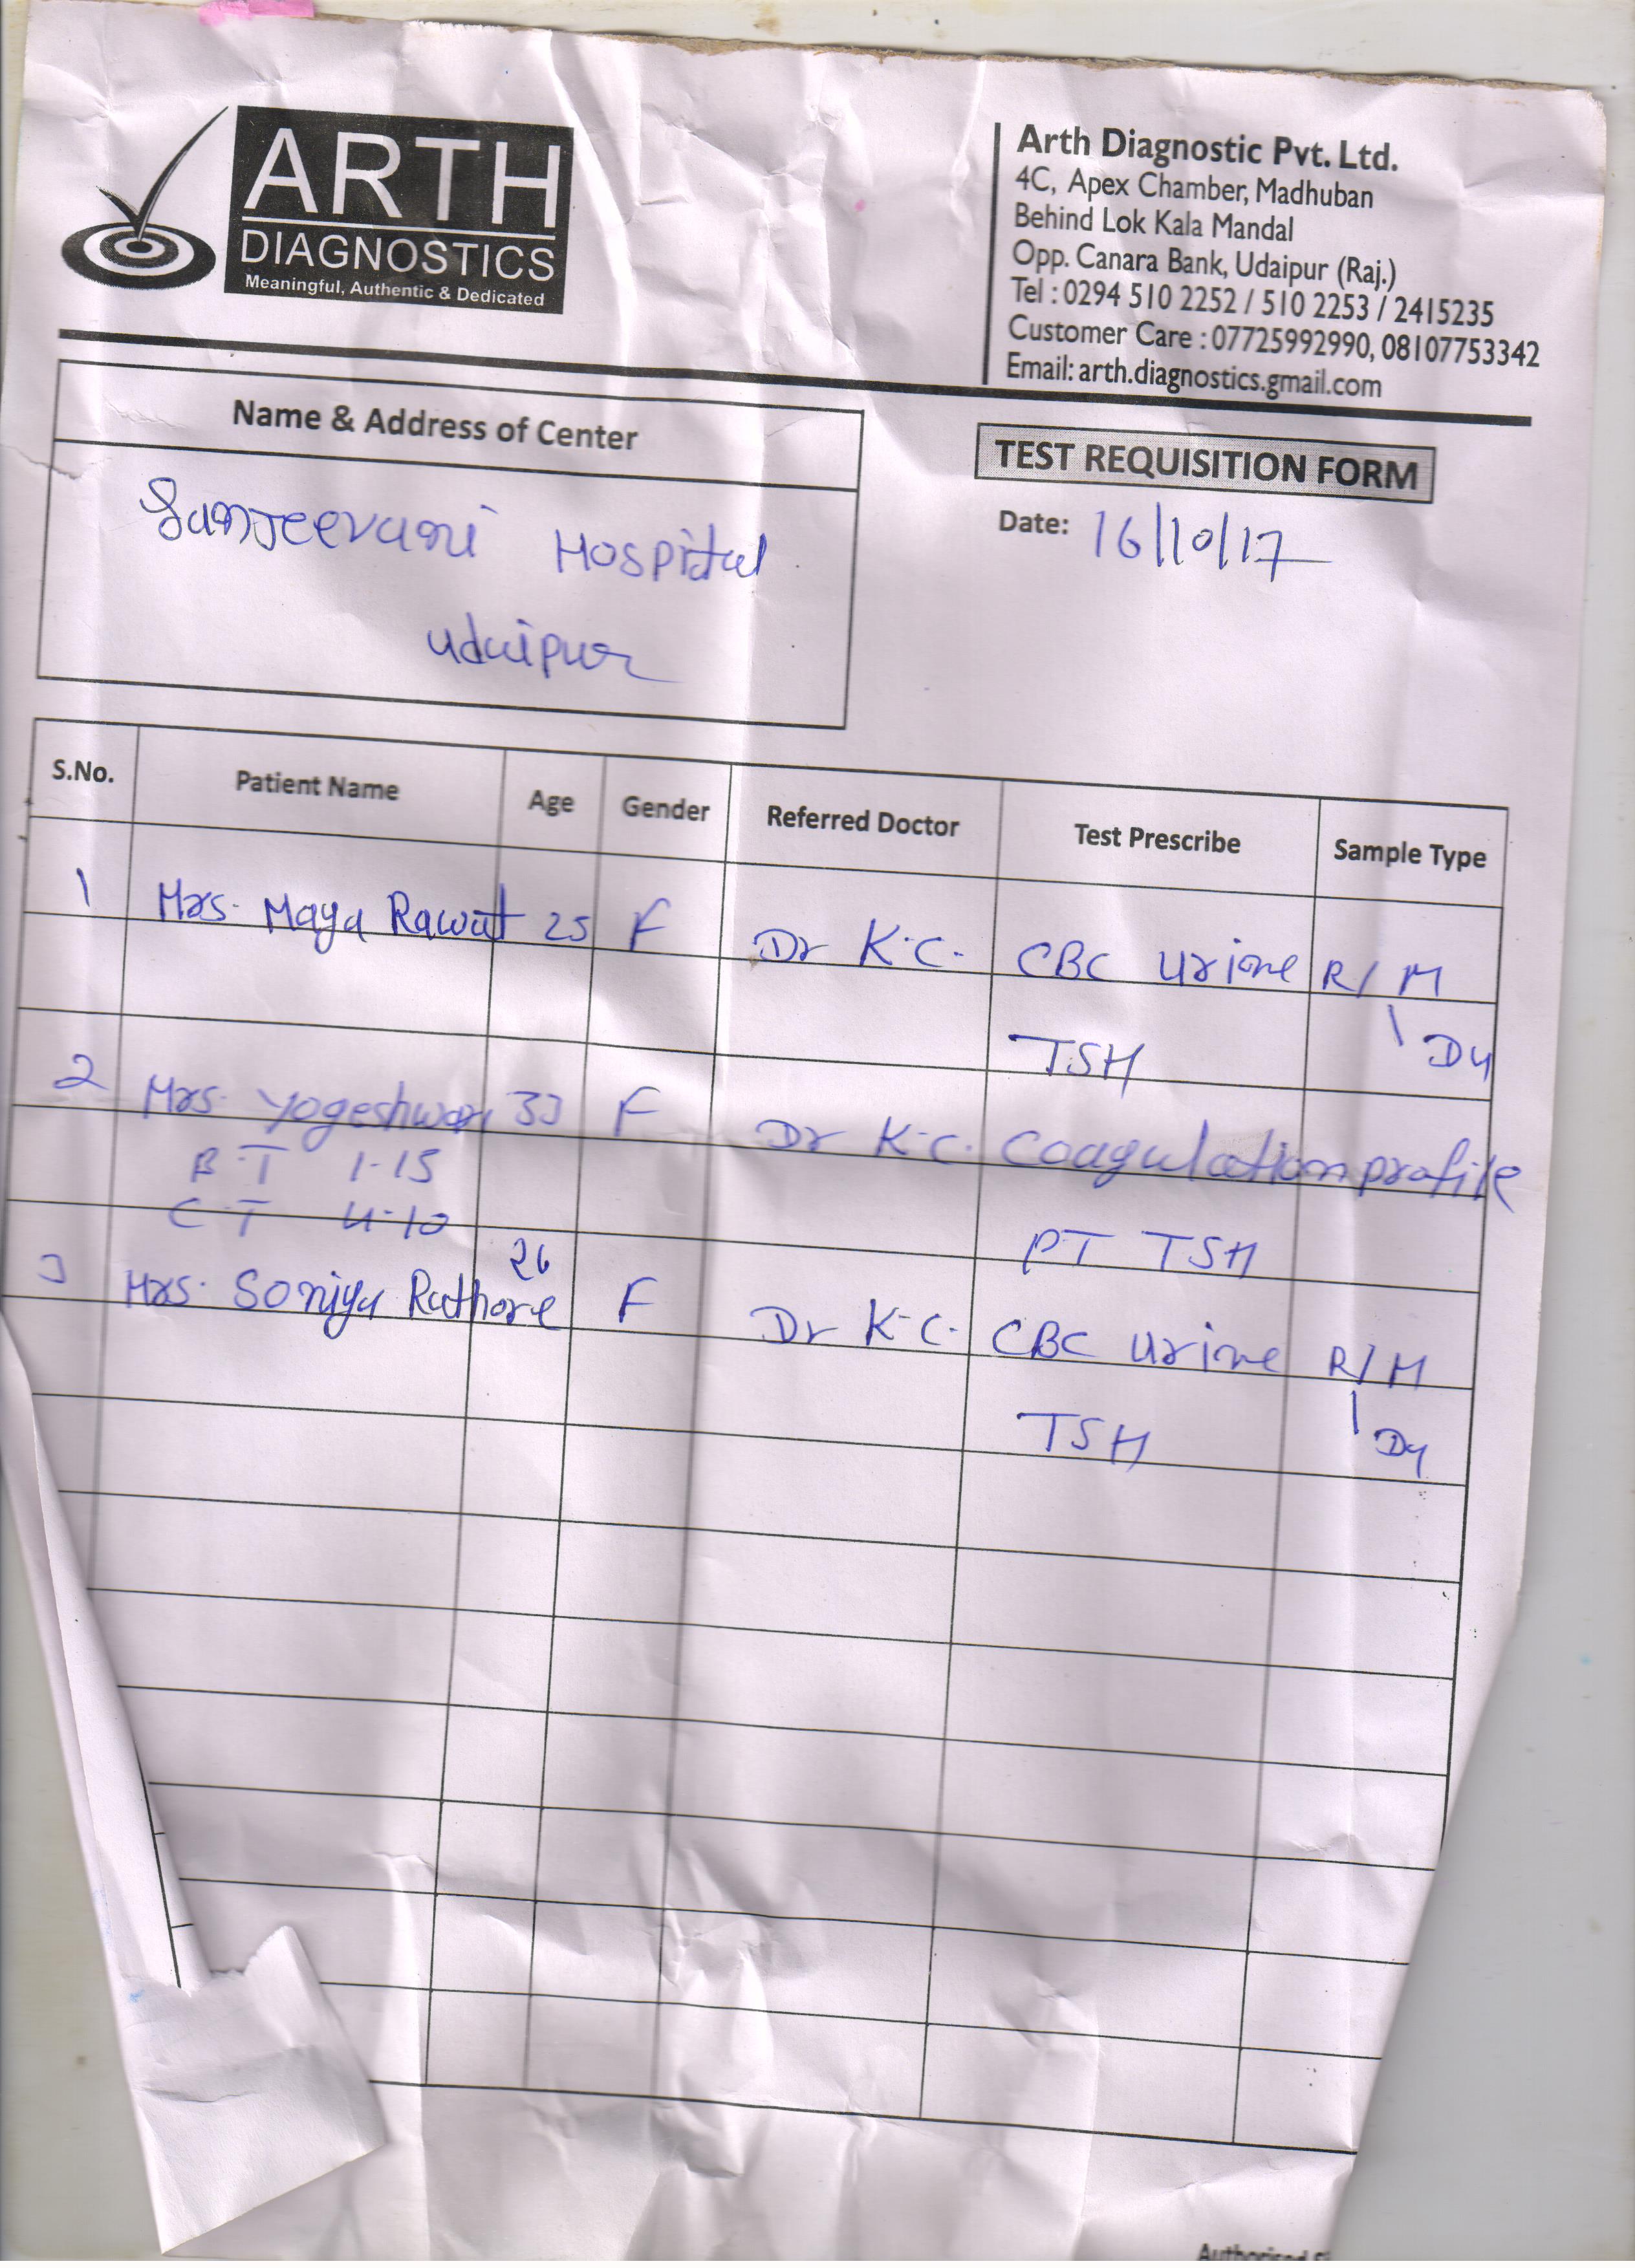 ARTH
DIAGNOSTICS
Meaningful, Authentic & Dedicated
Arth Diagnostic Pvt. Ltd.
4C, Apex Chamber, Madhuban
Behind Lok Kala Mandal
Opp. Canara Bank, Udaipur (Raj.)
Tel : 0294 510 2252 / 510 2253 / 2415235
Customer Care : 07725992990, 08107753342
Email: arth.diagnostics.gmail.com
Name & Address of Center
Sanjeevani Hospital
Udaipur
TEST REQUISITION FORM
Date: 16/10/17
S.No. Patient Name Age Gender Referred Doctor Test Prescribe Sample Type
1 Mrs. Maya Rawat 25 F Dr K.C. CBC Urine R/M
TSH
2 Mrs. Yogeshwari F Dr K.C. Coagulation profile
B.T 1-15
C.T 4-10
PT TSH
3 Mrs. Soniya Rathore 26 F Dr K.C. CBC Urine R/M
TSH
Authorised